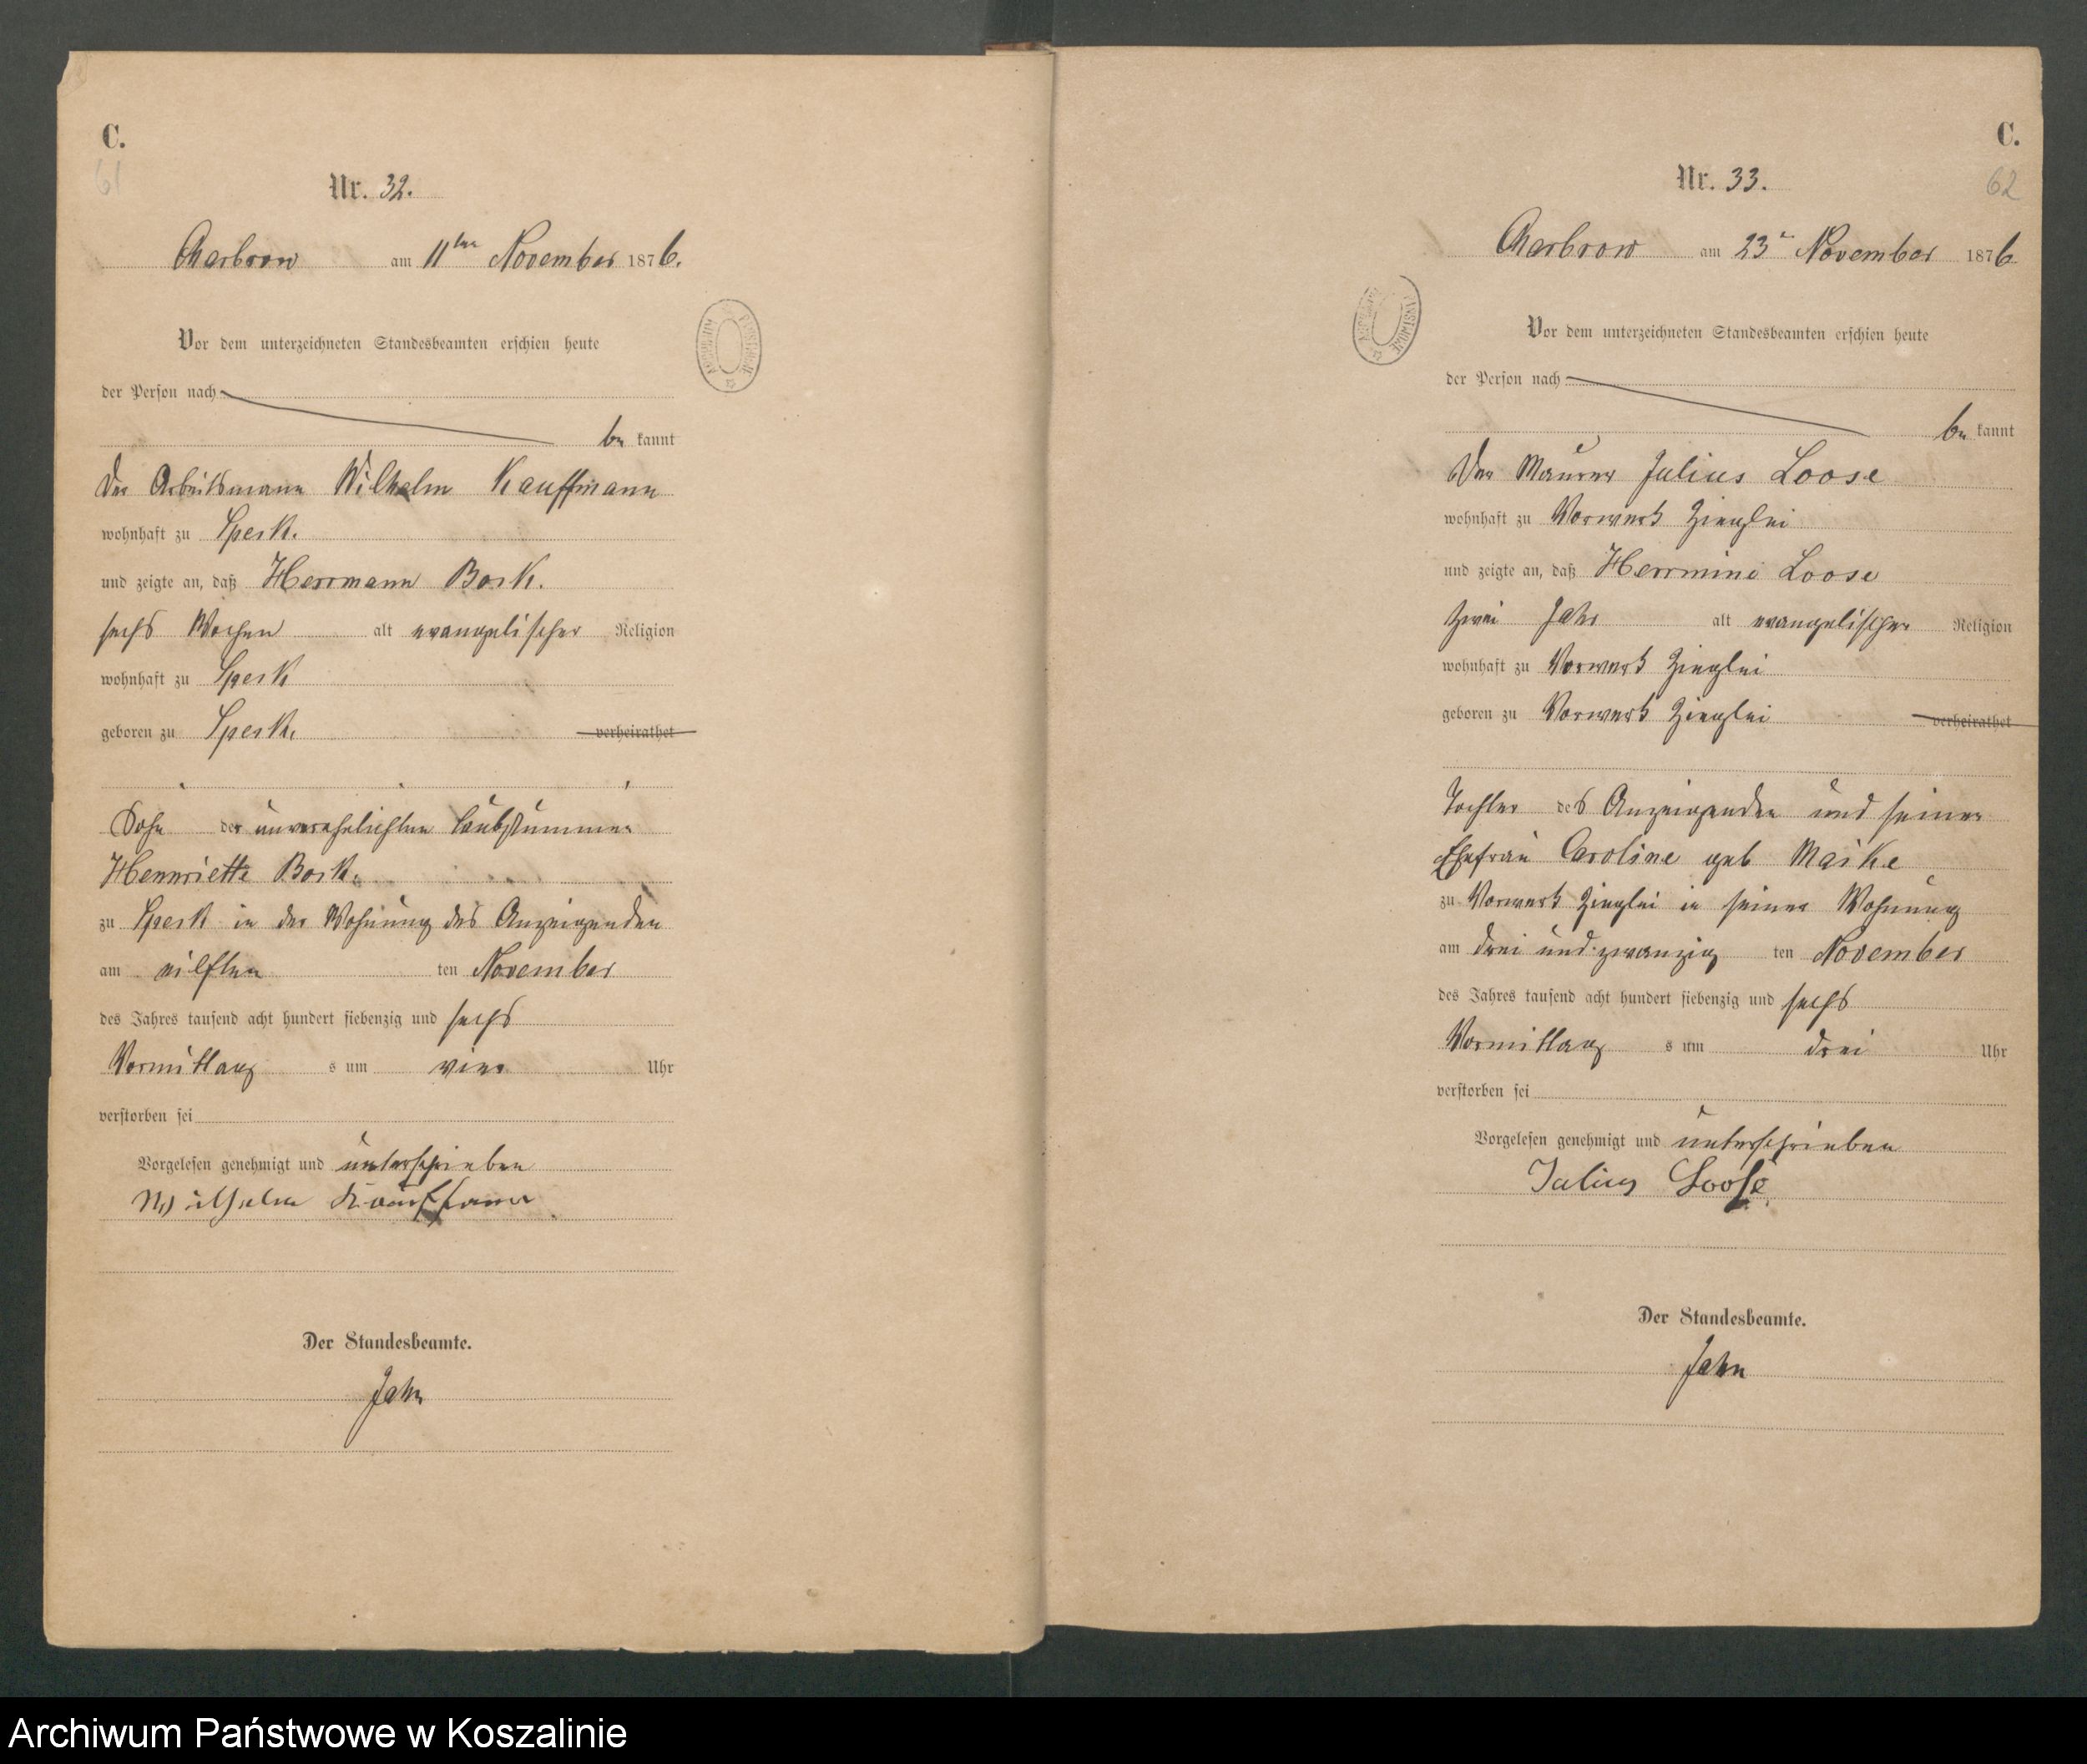 C.
61
Nr. 32.
Charbrow am 11ten November 1876.
Vor dem unterzeichneten Standesbeamten erschien heute
der Person nach
be kannt
Der Arbeitsmann Wilhelm Kauffmann
wohnhaft zu Speck.
und zeigte an, daß Herrmann Bork.
sechs Wochen alt evangelischer Religion
wohnhaft zu Speck
geboren zu Speck.
verheirathet
Sohn der unverehelichten taubstummen
Hennriette Bork.
zu Speck in der Wohnung des Anzeigenden
am eilften ten November
des Jahres tausend acht hundert siebenzig und sechs
Vormittag s um vier Uhr
verstorben sei
Vorgelesen genehmigt und unterschrieben
Wilhelm Kauffmann
Der Standesbeamte.
Jahn
C.
62
Nr. 33.
Charbrow am 23t November 1876
Vor dem unterzeichneten Standesbeamten erschien heute
der Person nach
be kannt
Der Maurer Julius Loose
wohnhaft zu Vorwerk Zieglei
und zeigte an, daß Herrmine Loose
zwei Jahr alt evangelischer Religion
wohnhaft zu Vorwerk Zieglei
geboren zu Vorwerk Zieglei verheirathet
Tochter des Anzeigenden und seiner
Ehefrau Caroline geb Maike
zu Vorwerk Zieglei in seiner Wohnung
am drei und zwanzig ten November
des Jahres tausend acht hundert siebenzig und sechs
Vormittag s um drei Uhr
verstorben sei
Vorgelesen genehmigt und unterschrieben
Julius Loose
Der Standesbeamte.
Jahn
Archiwum Państwowe w Koszalinie